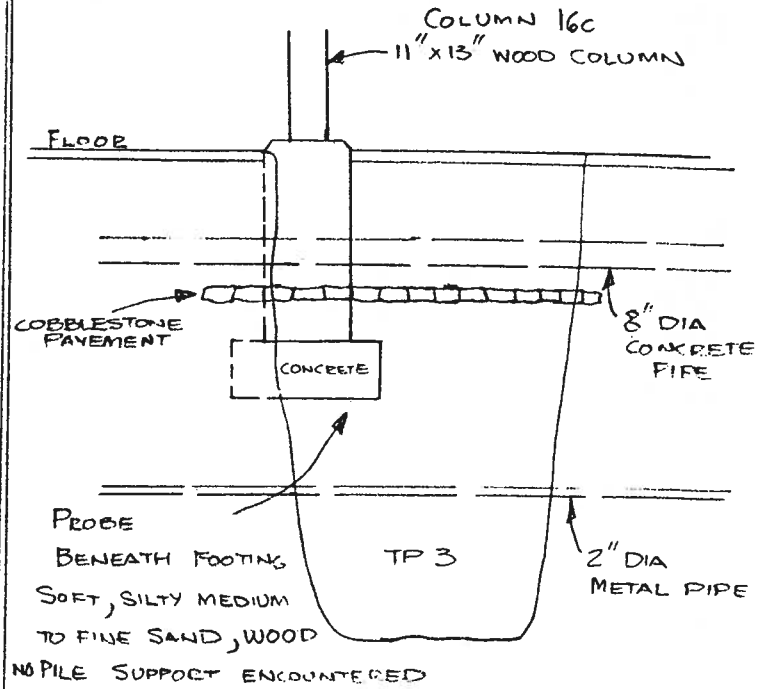 COLUMN 16C
11" X 13" WOOD COLUMN
FLOOR
COBBLESTONE
PAVEMENT
8" DIA
CONCRETE
PIPE
CONCRETE
PROBE
BENEATH FOOTING
SOFT, SILTY MEDIUM
TO FINE SAND, WOOD
NO PILE SUPPORT ENCOUNTERED
TP 3
2" DIA
METAL PIPE